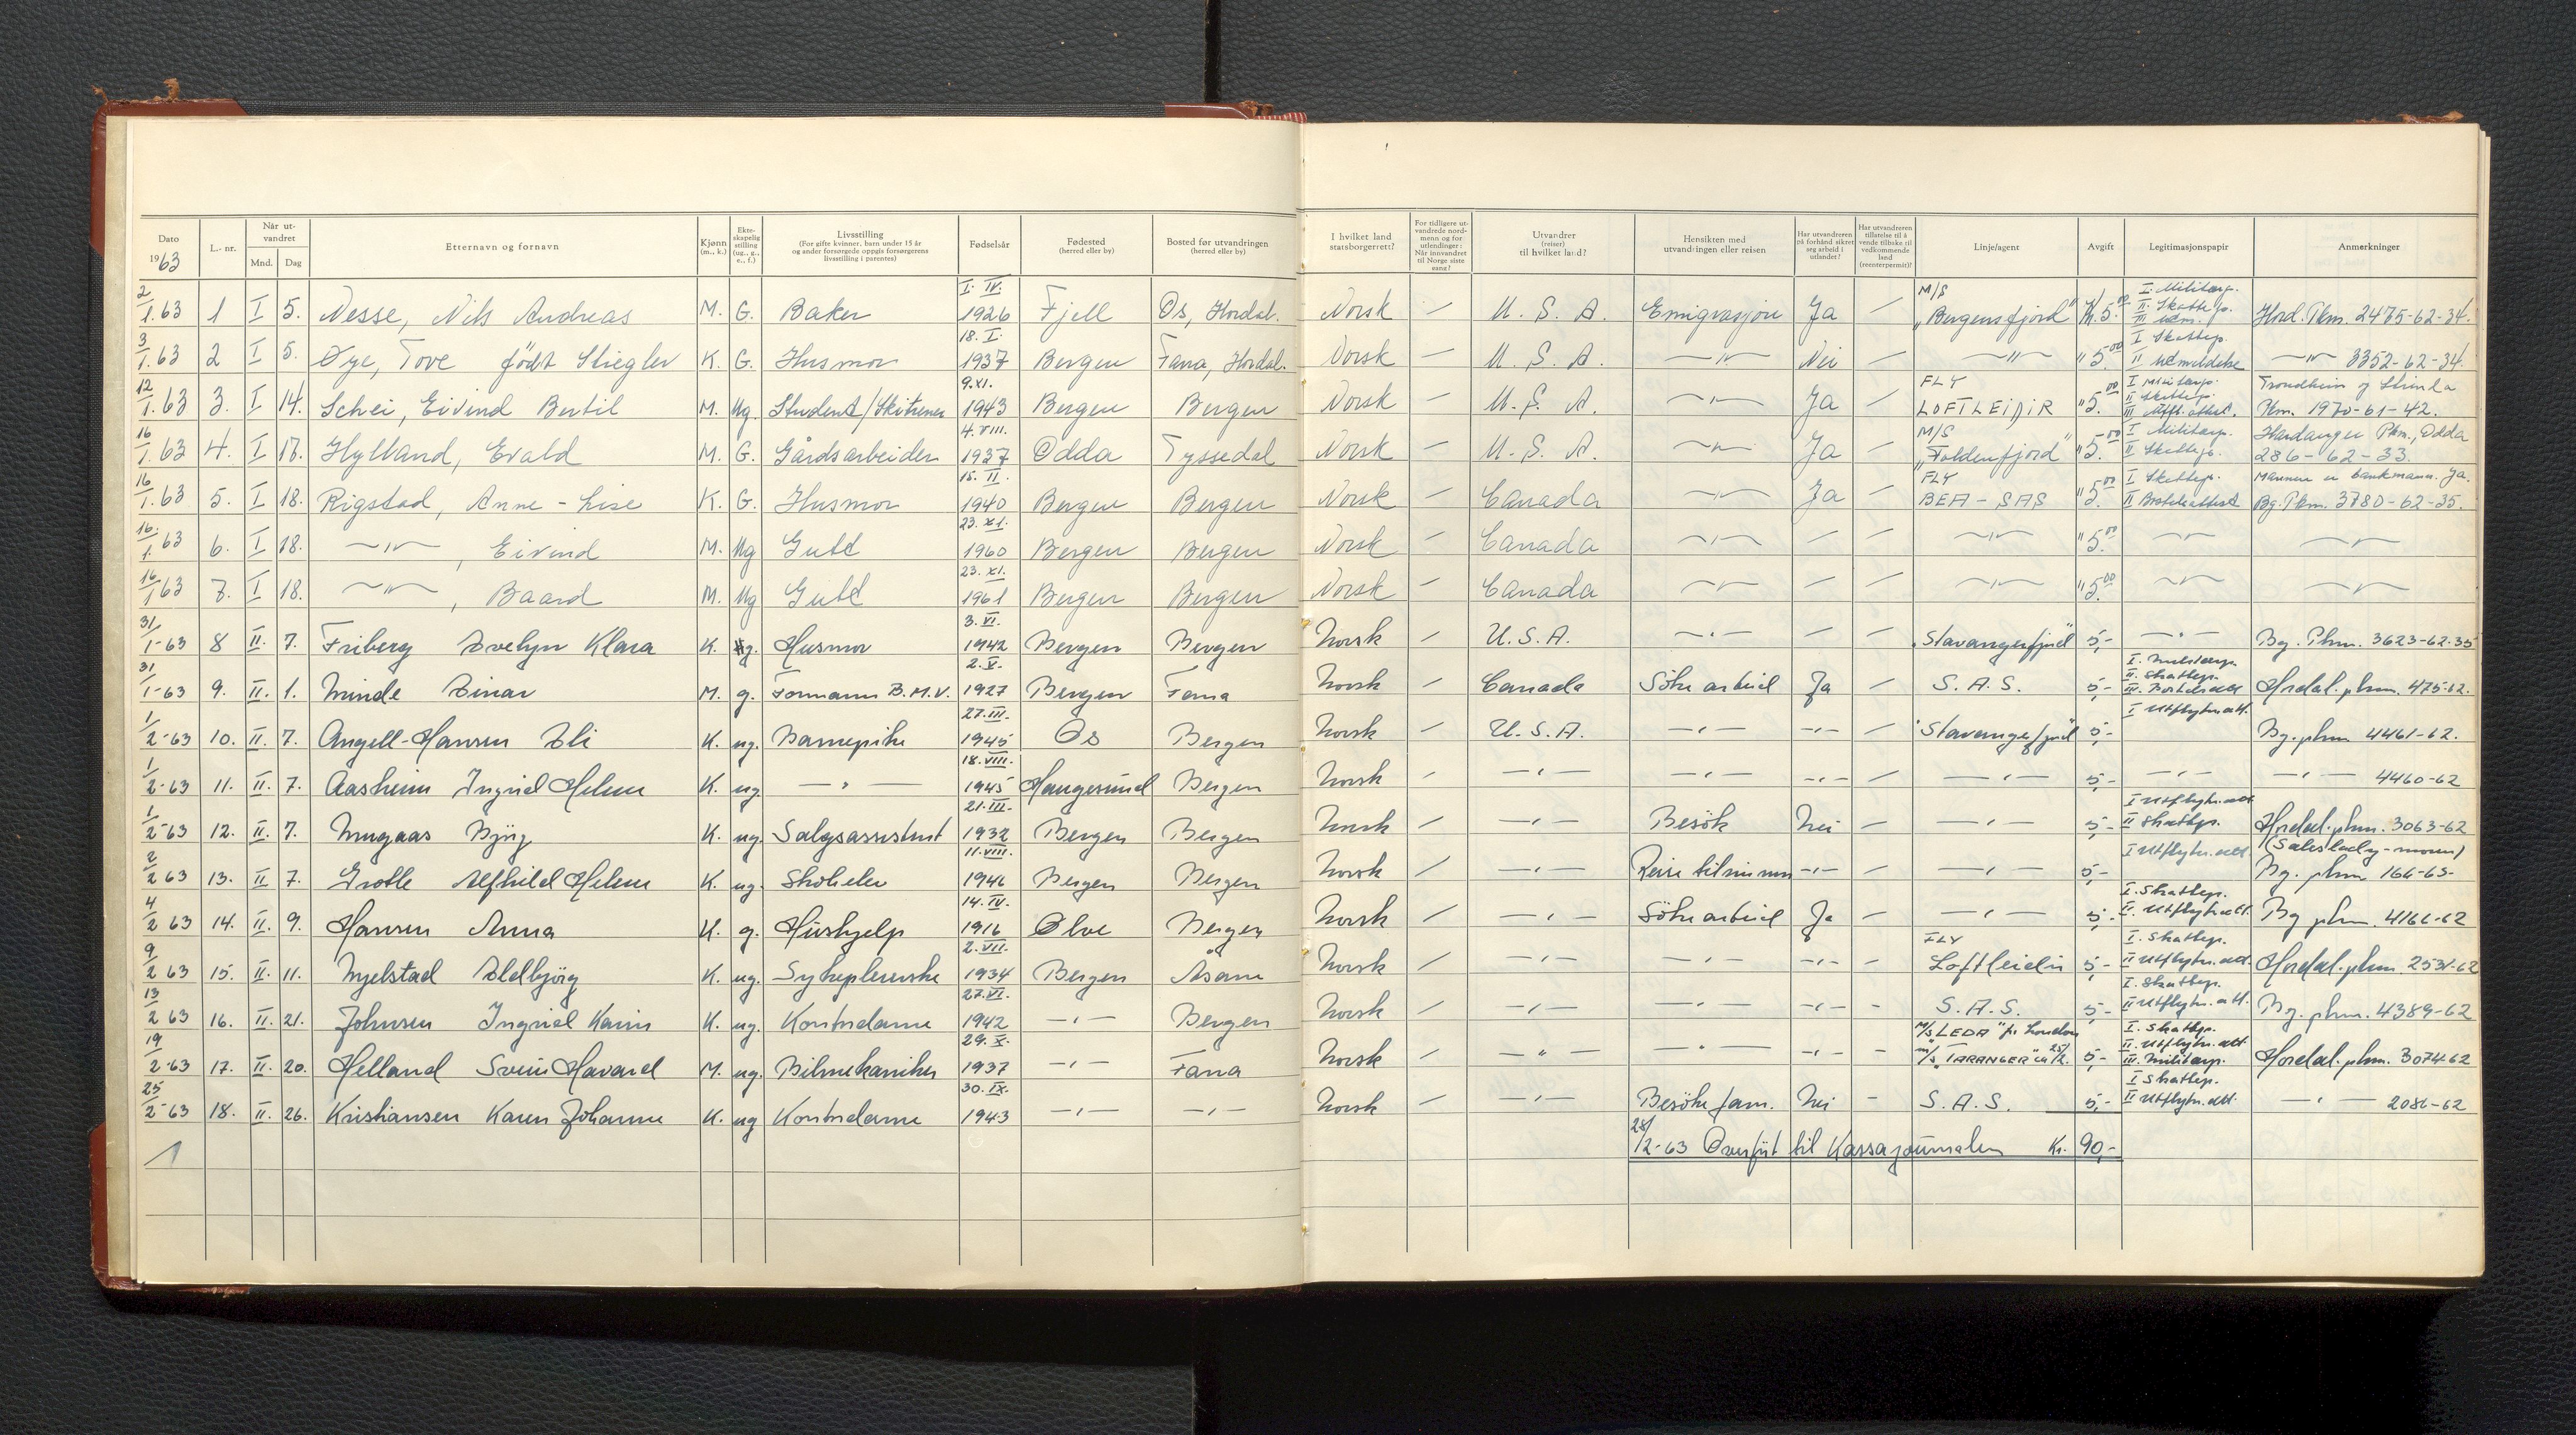 Dato 1963 L.-nr. Når utvandret Mnd. Dag Etternavn og fornavn Kjønn (m., k.) Ekteskapelig stilling (ug., g., e., f.) Livsstilling (For gifte kvinner, barn under 15 år og andre forsørgede oppgis forsørgerens livsstilling i parentes) Fødselsår Fødested (herred eller by) Bosted før utvandringen (herred eller by) I hvilket land statsborgerrett? For tidligere utvandrede nordmenn og for utlendinger: Når innvandret til Norge siste gang? Utvandrer (reiser) til hvilket land? Hensikten med utvandringen eller reisen Har utvandreren på forhånd sikret seg arbeid i utlandet? Har utvandreren tillatelse til å vende tilbake til vedkommende land (reenterpermit)? Linje/agent Avgift Legitimasjonspapir Anmerkninger
2/1.63 1 I 5. Nesse, Nils Andreas M. G. Baker I. IV. 1926 Fjell Os, Hordal. Norsk — U. S. A. Emigrasjon Ja — M/S "Bergensfjord" Kr. 5.00 I. Militærp. II. Skattep. III Utm. Hord. Pkm. 2475-62-34.
3/1.63 2 I 5. Øye, Tove født Stiegler K. G. Husmor 18. I. 1937 Bergen Fana, Hordal. Norsk — U. S. A. —"— Nei — —"— " 5.00 I Skattep. II Utmeldelse —"— 3352-62-34.
12/1.63 3. I 14. Schei, Eivind Bertil M. Ug. Student/Skitrener 9. XI. 1943 Bergen Bergen Norsk — U. S. A. —"— Ja — FLY LOFTLEIDIR " 5.00 I Militærp. II Skattep. III Utfl. attest. Trondheim og Strinda Pkm. 1970-61-42.
16/1.63 4. I 17. Hylland, Evald M. G. Gårdsarbeider 4. VIII. 1937 Odda Tyssedal Norsk — U. S. A. —"— Ja — M/S "Foldenfjord" " 5.00 I Militærp. II Skattep. Hardanger Pkm., Odda 286-62-33.
16/1.63 5. I 18. Rigstad, Anne-Lise K. G. Husmor 15. II. 1940 Bergen Bergen Norsk — Canada —"— Ja — FLY BEA-SAS " 5.00 I Skattep. II Bostedsattest Mannen er bankmann. Ja. Bg. Pkm. 3780-62-35.
16/1.63 6. I 18. —"—, Eivind M. Ug Gutt 23. XI. 1960 Bergen Bergen Norsk — Canada —"— — — —"— " 5.00 —"— —"—
16/1.63 7. I 18. —"—, Baard M. Ug Gutt 23. XI. 1961 Bergen Bergen Norsk — Canada —"— — — —"— " 5.00 —"— —"—
31/1-63 8 II. 7. Friberg Evelyn Klara K. g. Husmor 3. VI. 1942 Bergen Bergen Norsk — U.S.A. —"— — — "Stavangerfjord" 5,- —"— Bg. Pkm. 3623-62-35
31/1-63 9. II. 1. Minde Einar M. g. Formann B.M.V. 2. V. 1927 Bergen Fana Norsk — Canada Søke arbeid Ja — S.A.S. 5,- I. Militærp. II. Skattep. III. Bostedsatt Hordal. pkm. 475-62.
1/2-63 10. II. 7. Angell-Hansen Eli K. ug. Barnepike 27. III. 1945 Os Bergen Norsk — U.S.A. —"— —"— — "Stavangerfjord" 5,- I Utflytn. att. Bg. pkm 4461-62.
1/2-63 11. II. 7. Aasheim Ingrid Helene K. ug —"— 18. VIII. 1945 Haugesund Bergen Norsk — —"— —"— —"— — —"— 5,- —"— —"— 4460-62
1/2-63 12. II. 7. Mugaas Bjørg K. ug. Salgsassistent 21. III. 1932 Bergen Bergen Norsk — —"— Besøk Nei — —"— 5,- I Utflytn. att II Skattep. Hordal. pkm. 3063-62 (Saleslady-moren)
2/2 63 13. II 7. Grotle Alfhild Helene K. ug. Skoleelev 11. VIII. 1946 Bergen Bergen Norsk — —"— Reise til sin mor —"— — —"— 5,- I Utflytn. att. Bg. pkm 166-63-
4/2 63 14. II. 9. Hansen Anna K. g. Hushjelp 14. IV. 1916 Ølve Bergen Norsk — —"— Søke arbeid Ja — —"— 5,- I. Skattep. II. Utflytn. att. Bg pkm. 4166-62
9/2 63 15. II. 11. Myelstad Eldbjørg K. ug. Sykepleierske 2. VII. 1934 Bergen Åsane Norsk — —"— —"— —"— — FLY Loftleidir 5,- I. Skattep. II Utflytn. att. Hordal. pkm. 2531-62
13/2 63 16. II. 21. Johnsen Ingrid Karin K. ug. Kontordame 27. VI. 1942 —"— Bergen Norsk — —"— —"— —"— — S.A.S. 5,- I. Skattep. II Utflytn. att. Bg. pkm. 4389-62
19/2-63 17. II. 20. Helland Svein Havard M. ug. Bilmekaniker 29. X. 1937 —"— Fana Norsk — —"— —"— —"— — M/S "LEDA" fr London M/S "TARANGER" 25/2. 5,- I. Skattep. II. Utflytn. att III. Militærp. Hordal. pkm. 3074-62
25/2-63 18. II. 26. Kristiansen Karen Johanne K. ug Kontordame 30. IX. 1943 —"— —"— Norsk — —"— Besøke fam. Nei — S.A.S. 5,- I Skattep. II Utflytn. att. —"— 2086-62
28/2-63 Overført til Kassajournalen Kr. 90,-
1